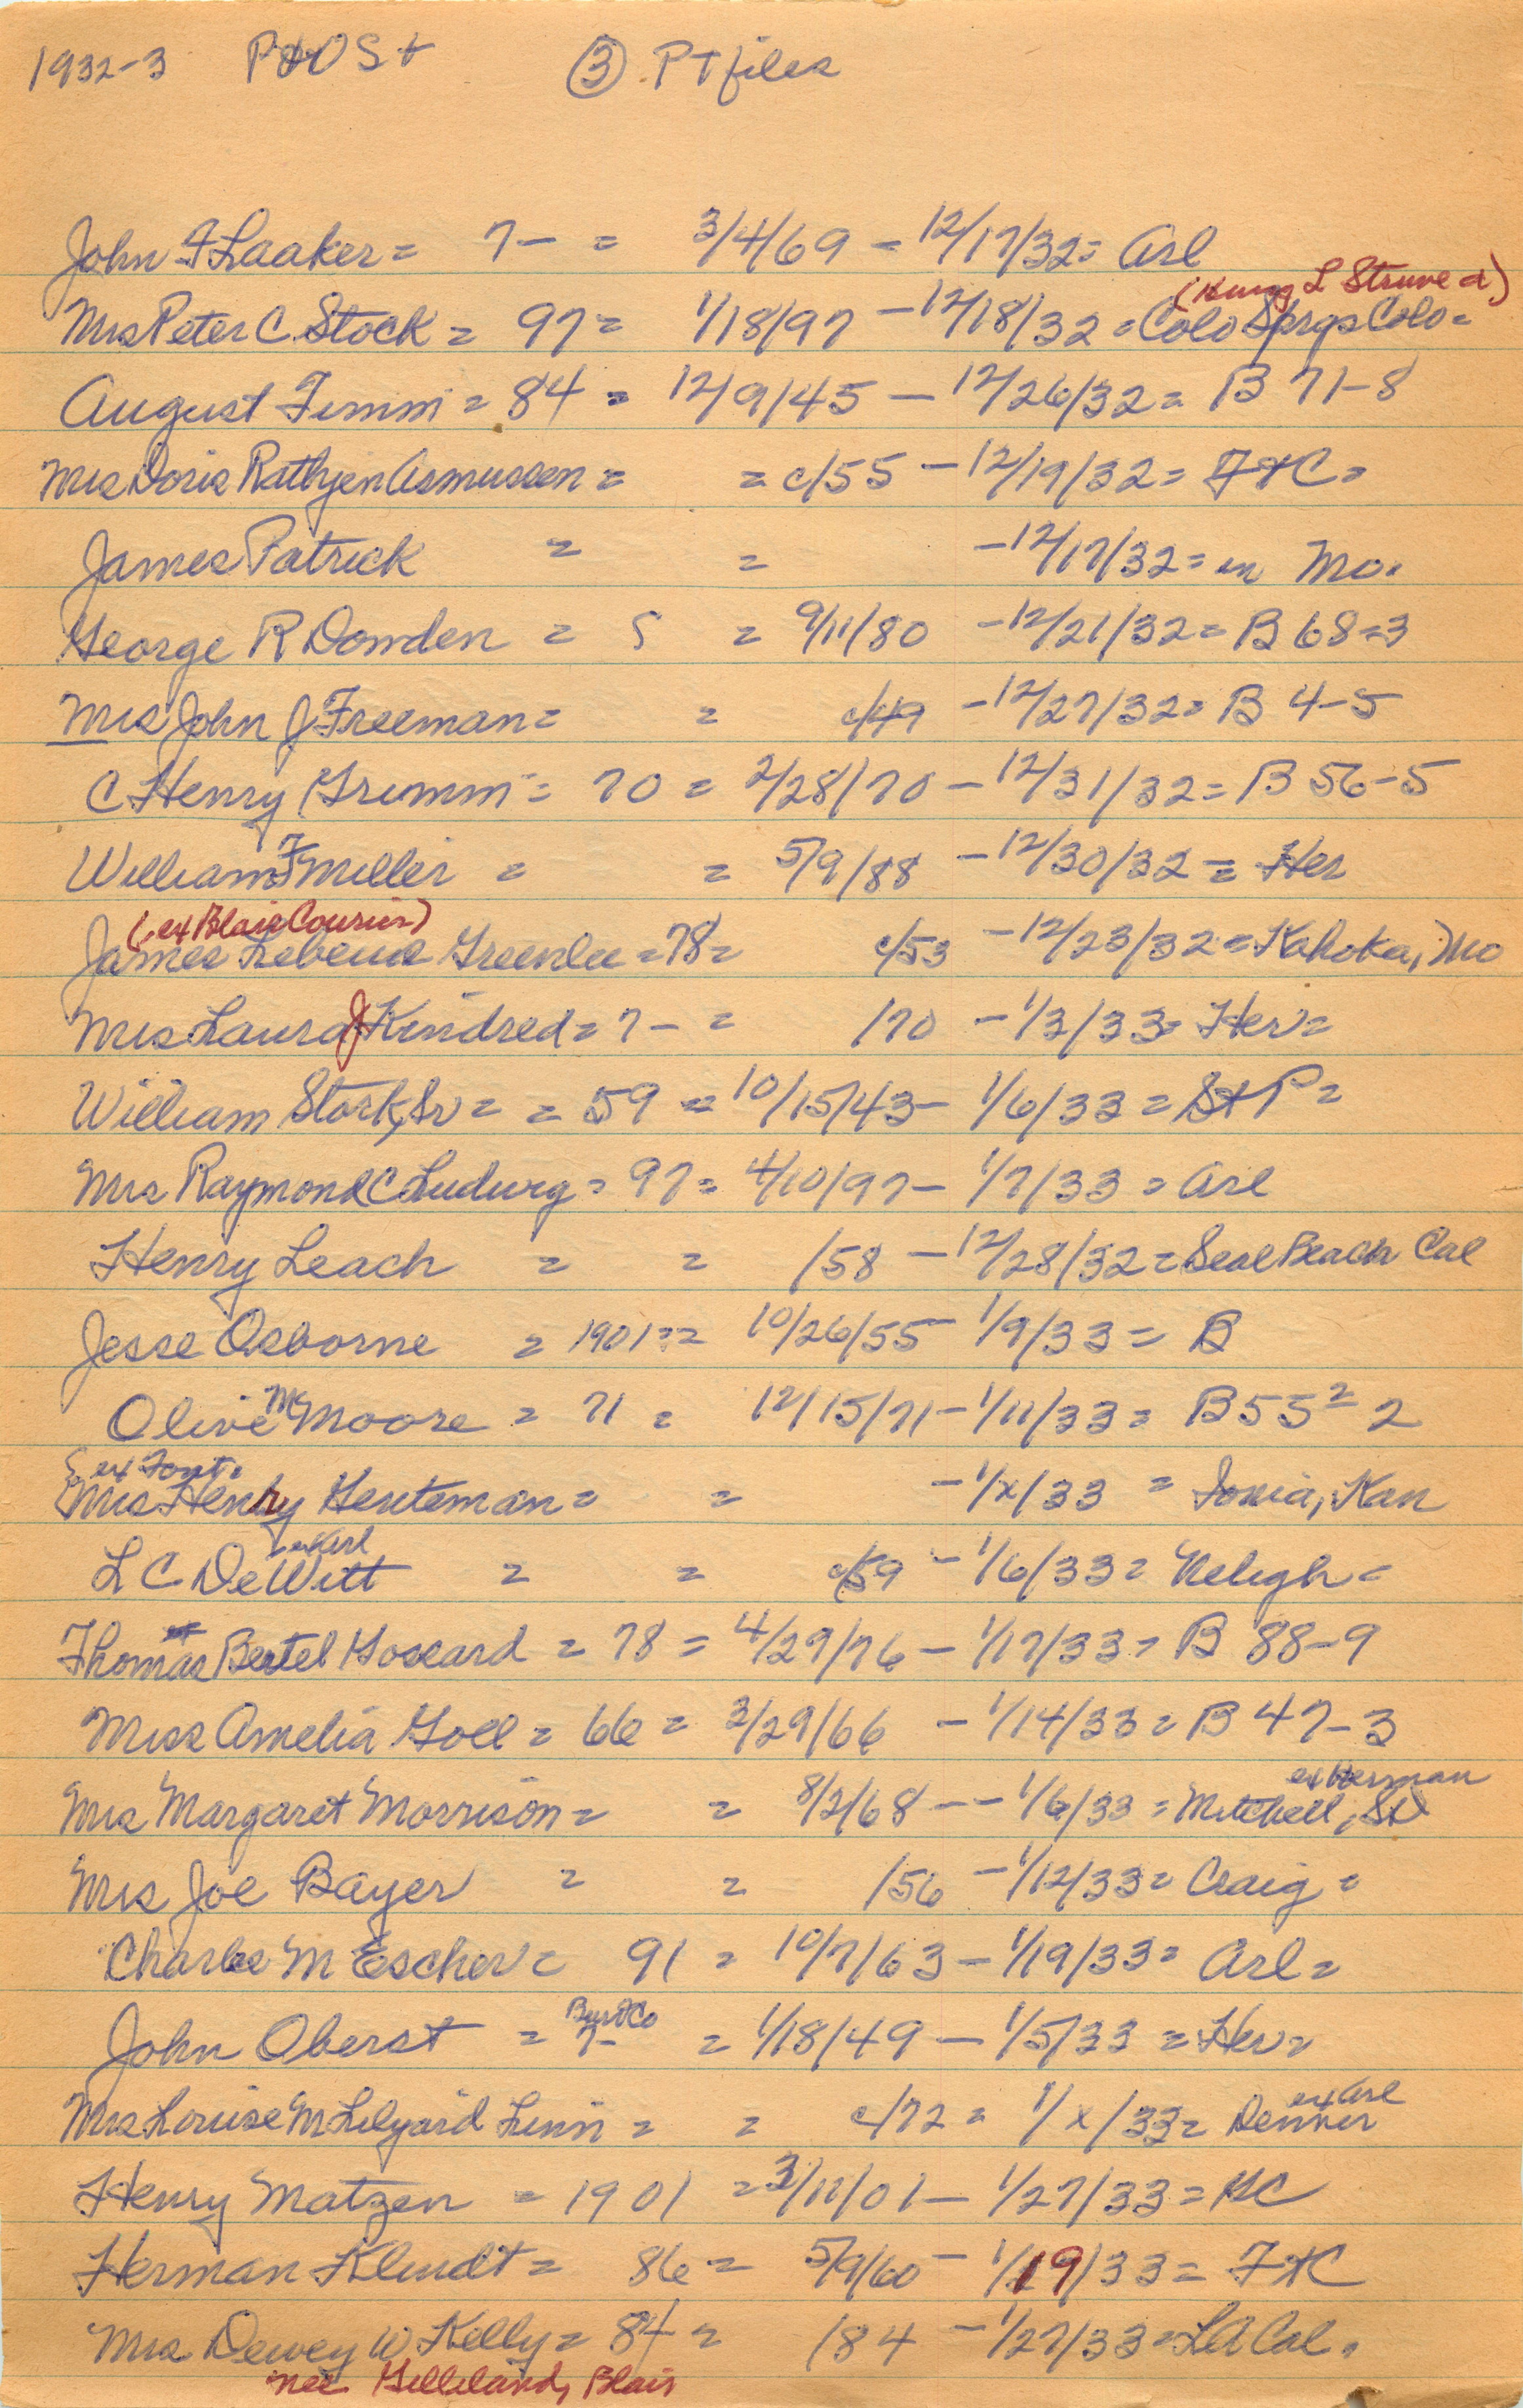 1932-3 P&OS+ ③ PT files
John F Laaker = 7- = 3/4/69 - 12/17/32 = Arl
(Henry L Struve d)
Mrs Peter C Stock = 97 = 1/18/97 - 12/18/32 = Colo Sprgs Colo =
August Timm = 84 = 12/9/45 - 12/26/32 = B 71-8
Mrs Doris Rathjen Asmussen = = c/55 - 12/19/32 = FtC =
James Patrick = = - 12/17/32 = in Mo.
George R Dowden = 5 = 9/11/80 - 12/21/32 = B 68=3
Mrs John J Freeman = = c/49 - 12/27/32 = B 4-5
C Henry Grimm = 70 = 2/28/70 - 12/31/32 = B 56-5
William F Miller = = 5/9/88 - 12/30/32 = Her
(ex Blair Courier)
James Greenlee = 78 = c/53 - 12/23/32 = Kahoka, Mo
Mrs Laura J Kindred = 7- = /70 - 1/3/33 = Her =
William Stork, Sr = = 59 = 10/15/43 - 1/6/33 = StP =
Mrs Raymond C Ludwig = 97 = 4/10/97 - 1/7/33 = Arl
Henry Leach = = /58 - 12/28/32 = Seal Beach Cal
Jesse Osborne = 1901 == 10/26/55 - 1/9/33 = B
Olive Mc Moore = 71 = 12/15/71 - 1/11/33 = B 55 = 2
ex Font.
Mrs Henry Genteman = = - 1/x/33 = Ionia, Kan
ex Arl
L C DeWitt = = c/59 - 1/6/33 = Neligh =
Thomas Bertel Gossard = 78 = 4/29/76 - 1/17/33 = B 88-9
Miss Amelia Goll = 66 = 3/29/66 - 1/14/33 = B 47-3
ex Herman
Mrs Margaret Morrison = = 8/2/68 -- 1/6/33 = Mitchell, SD
Mrs Joe Bayer = = /56 - 1/12/33 = Craig =
Charles M Escher = 91 = 10/7/63 - 1/19/33 = Arl =
Burt Co
John Oberst = 7- = 1/18/49 - 1/5/33 = Her =
ex Arl
Mrs Louise M Lilyard Linn = = c/72 = 1/x/33 = Denver
Henry Matzen = 1901 = 3/11/01 - 1/27/33 = KC
Herman Klindt = 86 = 5/9/60 - 1/19/33 = FtC
Mrs Dewey W Kelly = 84 = /84 - 1/27/33 = LA Cal.
nee Gilleland, Blair